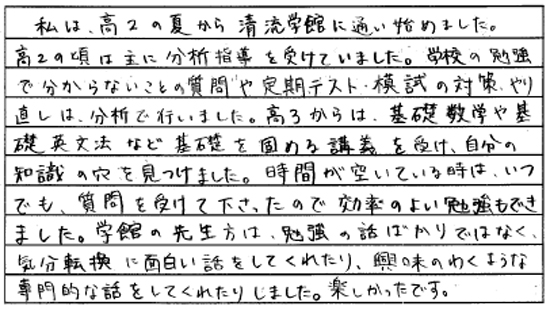 私は、高2の夏から清流学館に通い始めました。
高2の頃は主に分析指導を受けていました。学校の勉強
で分からないことの質問や定期テスト・模試の対策、やり
直しは、分析で行いました。高3からは、基礎数学や基
礎英文法など基礎を固める講義を受け、自分の
知識の穴を見つけました。時間が空いている時は、いつ
でも、質問を受けて下さったので効率のよい勉強もでき
ました。学館の先生方は、勉強の話ばかりではなく、
気分転換に面白い話をしてくれたり、興味のわくような
専門的な話をしてくれたりしました。楽しかったです。